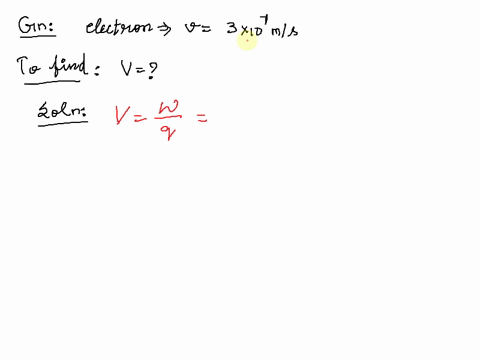 Gin: electron ⇒ v = 3×10⁷ m/s
To find: V = ?
Soln: V = W/q =